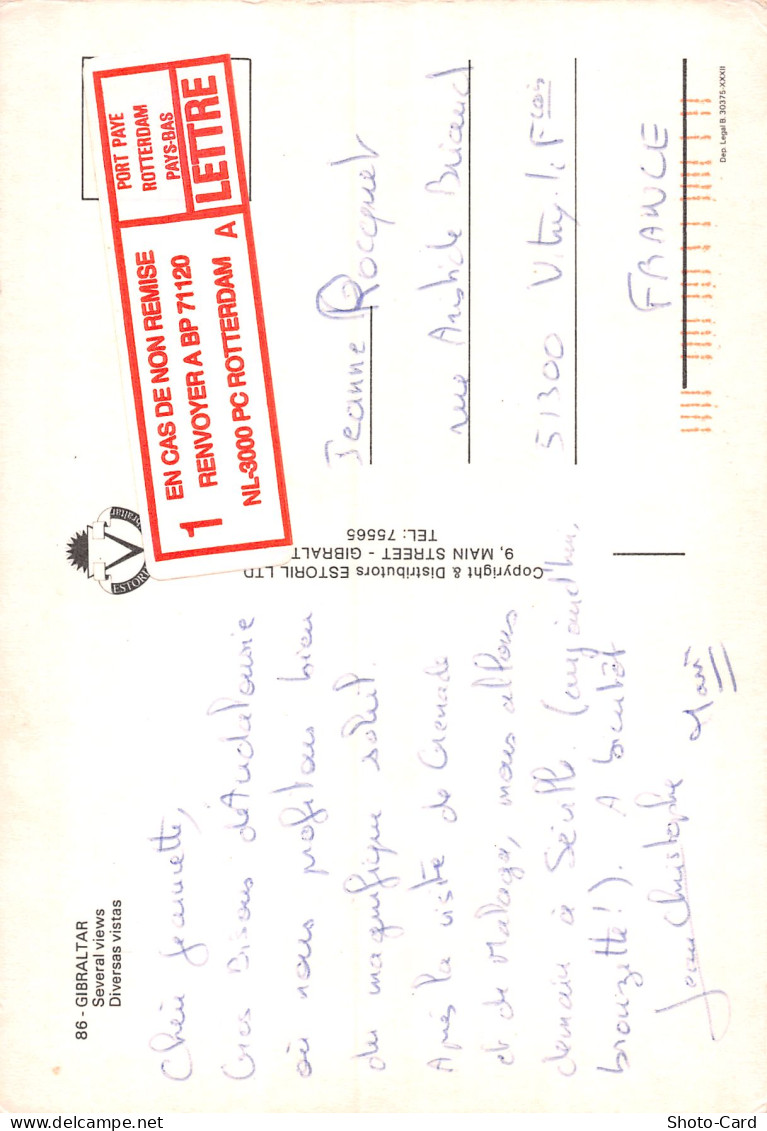 86 - GIBRALTAR
Several views
Diversas vistas
Chère Jeannette,
Gros Bisous d'Andalousie
où nous profitons bien
du magnifique soleil.
Après la visite de Grenade
et de Malaga, nous allons
demain à Séville. (aujourd'hui,
bronzette!). A bientôt
Jean Christophe
ESTORIL
Gibraltar
Copyright & Distributors ESTORIL LTD
9, MAIN STREET - GIBRALT
TEL: 75565
1
EN CAS DE NON REMISE
RENVOYER A BP 71120
NL-3000 PC ROTTERDAM A
PORT PAYE
ROTTERDAM
PAYS-BAS
LETTRE
Jeanne Rocquet
rue Aristide Briand
51300 Vitry. l. F çois
FRANCE
Dep. Legal B. 30375-XXXII
Shoto-Card